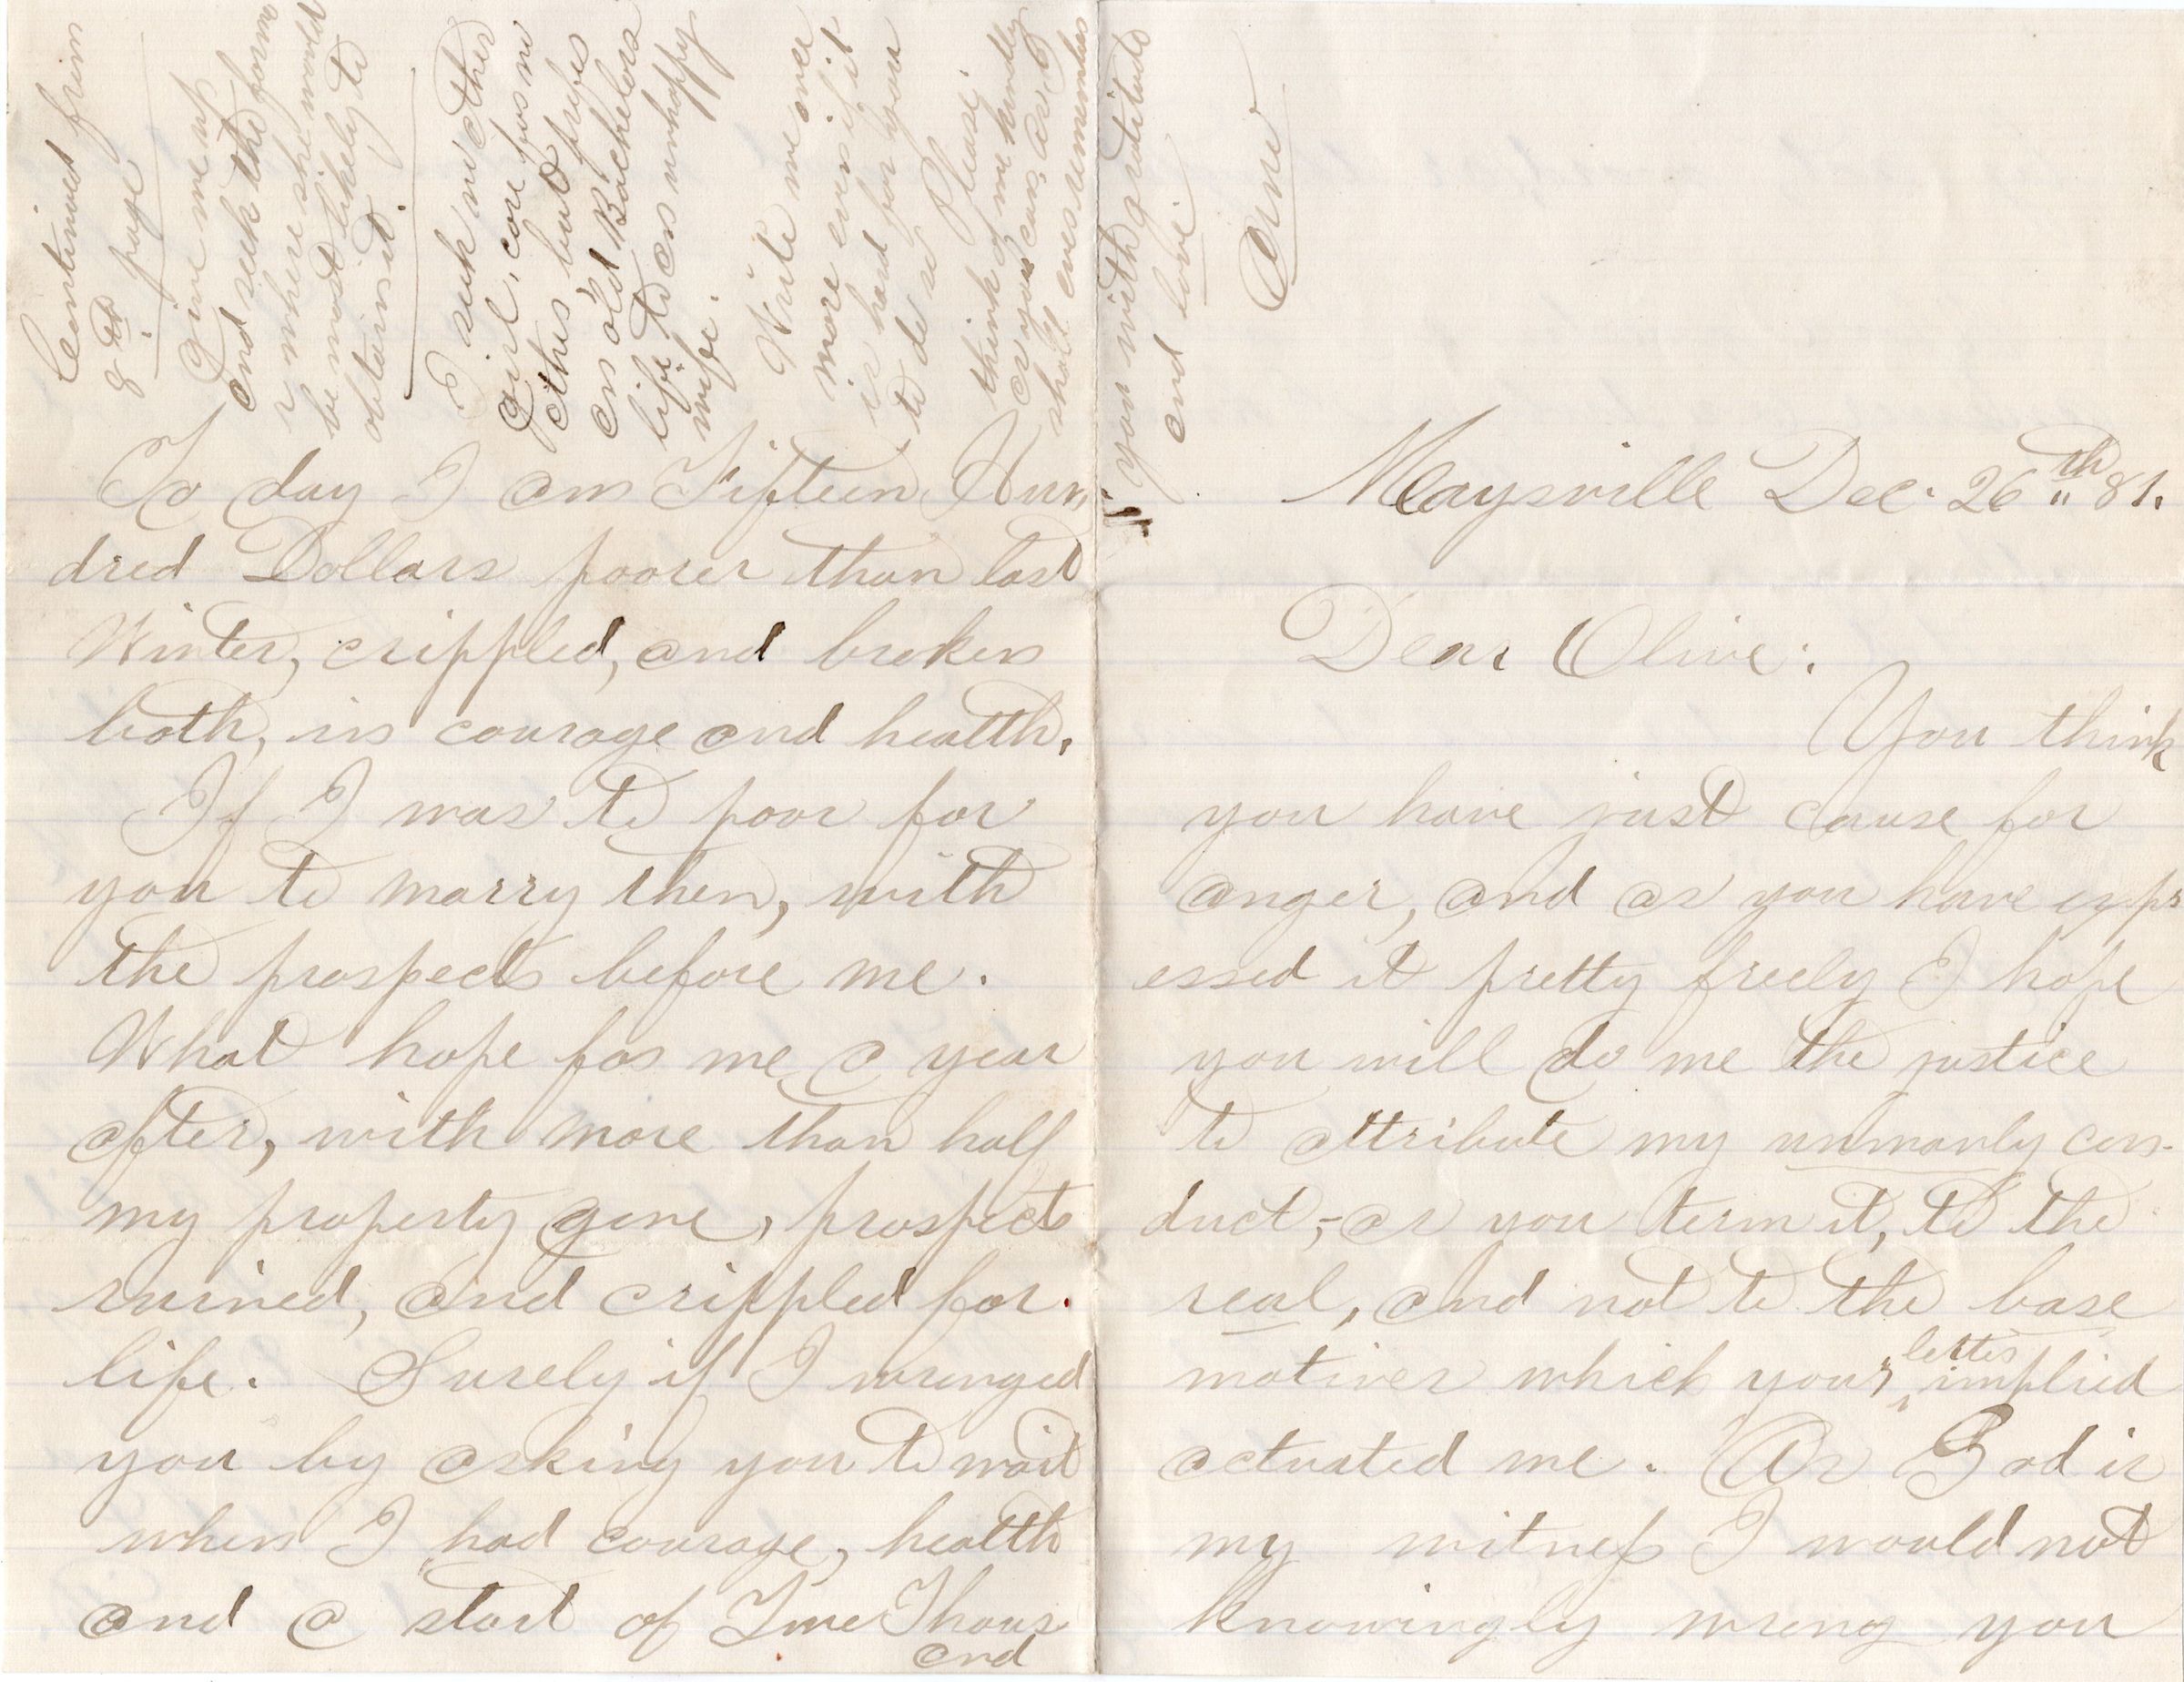 Maysville Dec. 26th " 81.
Dear Olive:
You think
you have just cause for
anger, and as you have expr
essed it pretty freely I hope
you will do me the justice
to attribute my unmanly con-
duct,- as you term it, to the
real, and not to the base
motives which your letter implied
actuated me. As God is
my witness I would not
knowingly wrong you
To day I am Fifteen Hun
dred Dollars poorer than last
Winter, crippled, and broken
both, in courage and health.
If I was to poor for
you to marry then, with
the prospects before me.
What hope for me a year
after, with more than half
my property gone, prospects
ruined, and crippled for
life. Surely if I wronged
you by asking you to wait
when I had courage, health
and a start of Two Thous
and
Continued from
8th page
give me up
and seek the form
r where she would
be most likely to
obtain it.
I seek no other
girl, care for no
other but prefer
an old Bachelors
life to an unhappy
wife.
Write me once
more even if it
is hard for you
to do so. Please
think of me kindly
as you can, as I
shall ever remember
you with gratitude
and love.
Orne